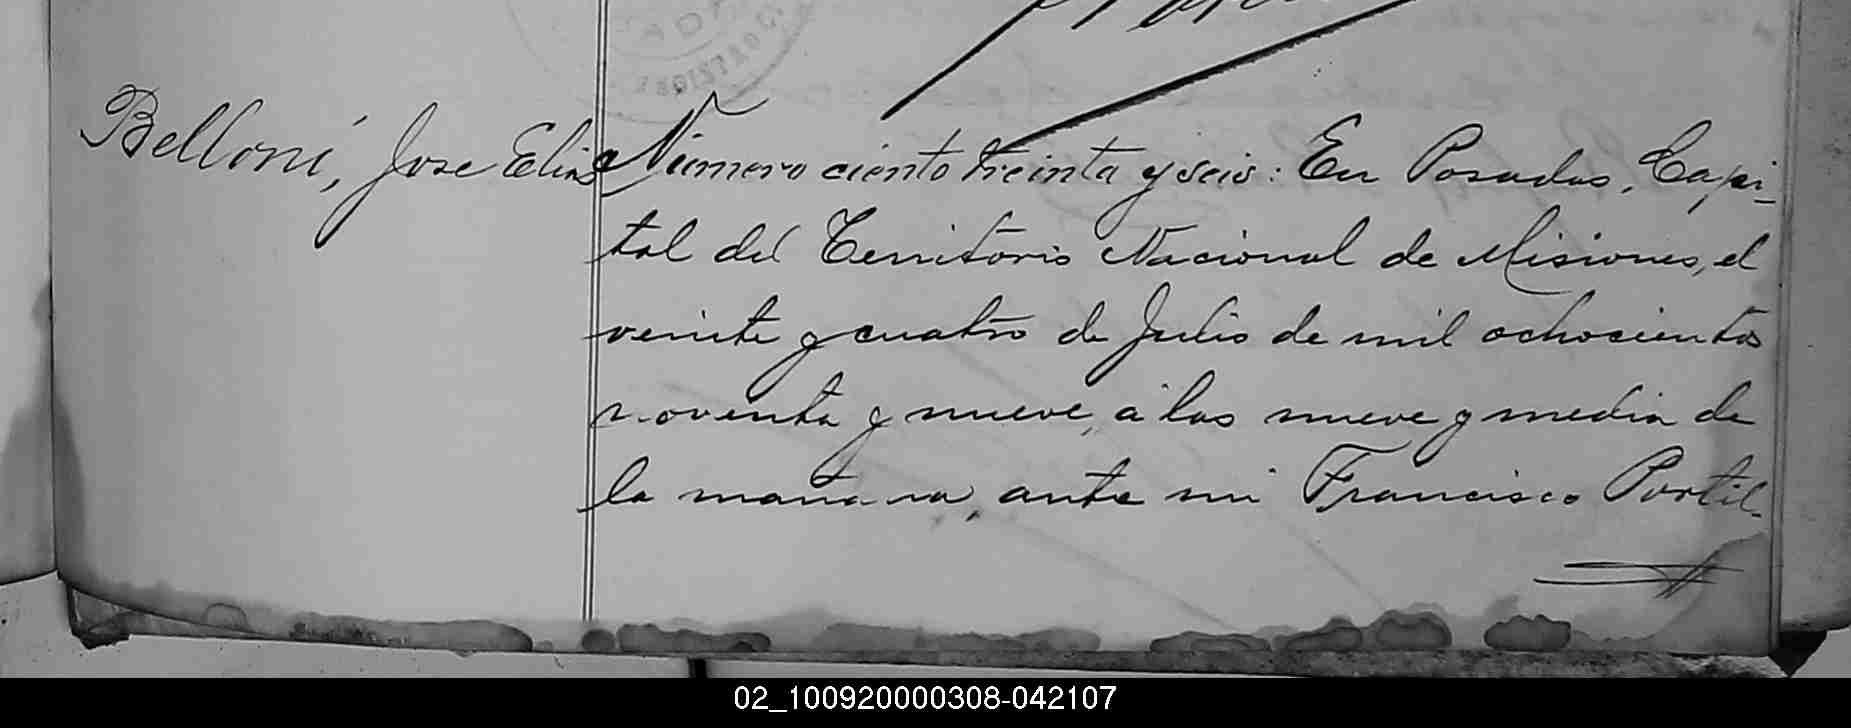 Belloni, Jose Elias
Número ciento treinta y seis: En Posadas, Capi-
tal del Territorio Nacional de Misiones, el
veinte y cuatro de Julio de mil ochocientos
noventa y nueve, á las nueve y media de
la mañana, ante mi Francisco Portil-
02_100920000308-042107